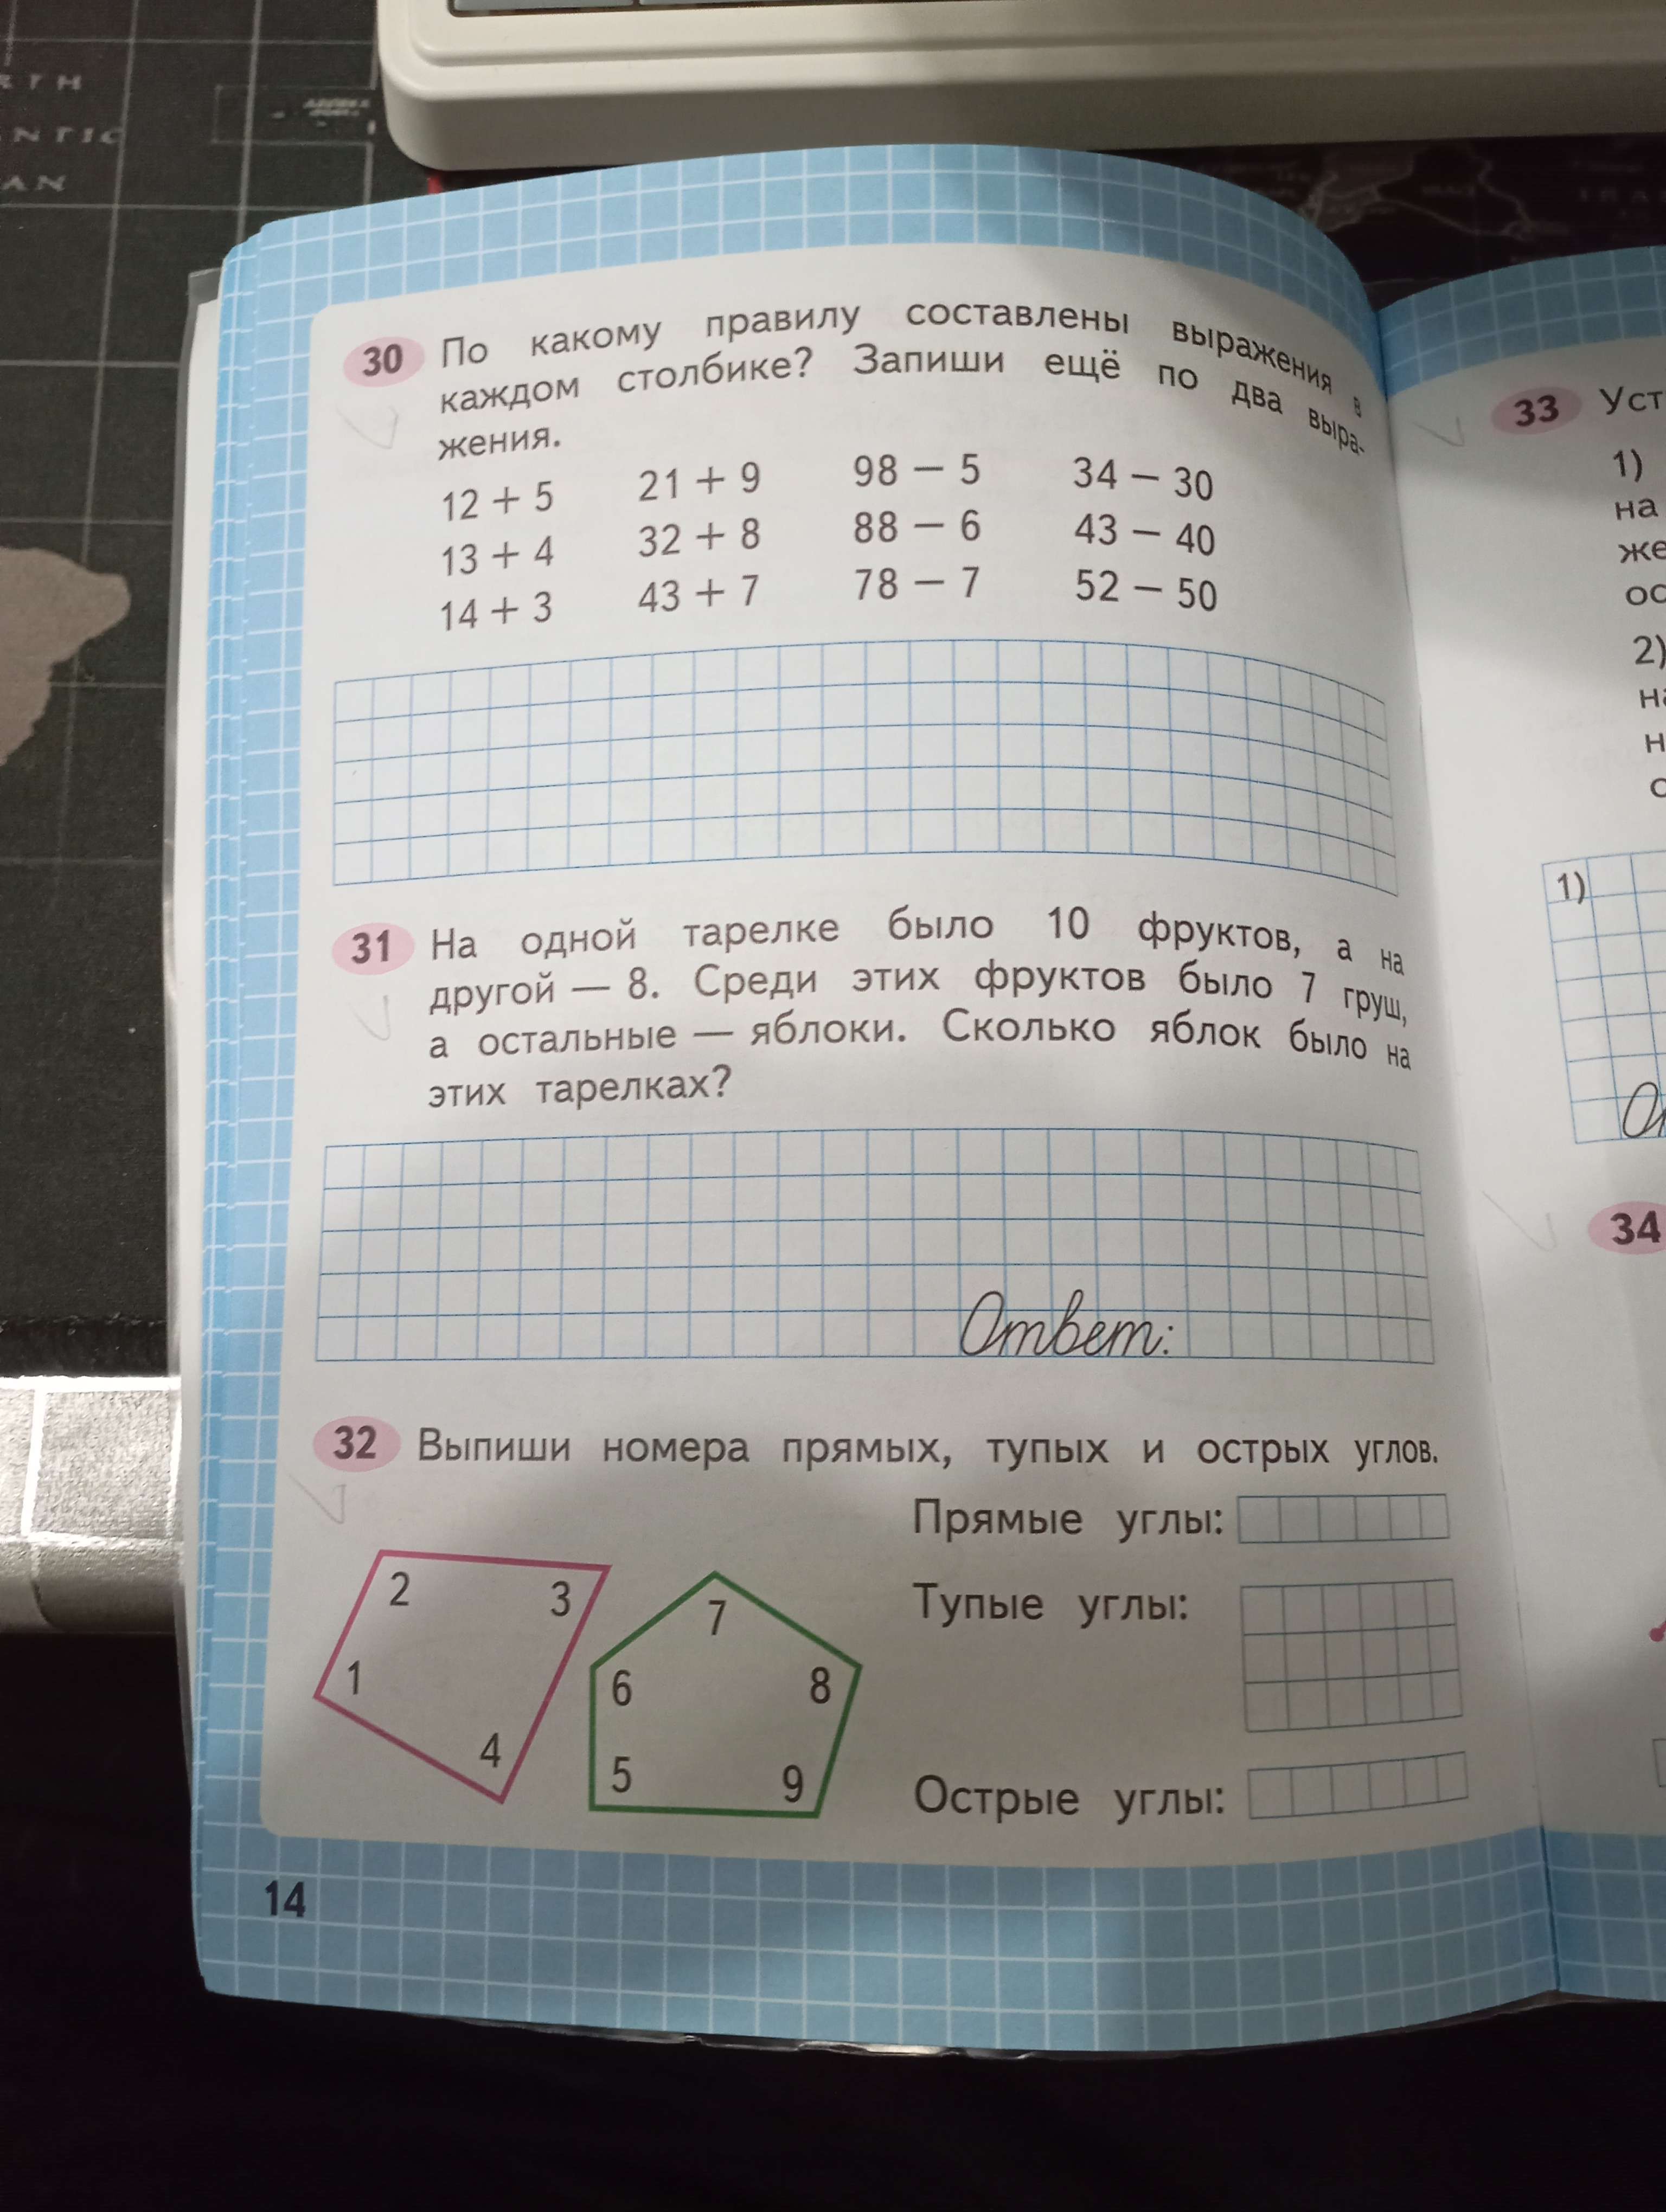 RTH
NTIC
AN
30 По какому правилу составлены выражения в
каждом столбике? Запиши ещё по два выра-
жения.
12 + 5 21 + 9 98 − 5 34 − 30
13 + 4 32 + 8 88 − 6 43 − 40
14 + 3 43 + 7 78 − 7 52 − 50
31 На одной тарелке было 10 фруктов, а на
другой — 8. Среди этих фруктов было 7 груш,
а остальные — яблоки. Сколько яблок было на
этих тарелках?
Ответ:
32 Выпиши номера прямых, тупых и острых углов.
Прямые углы:
Тупые углы:
Острые углы:
2 3
1
4
7
6 8
5 9
14
33 Уст
1)
на
же
ос
2)
н
1)
34